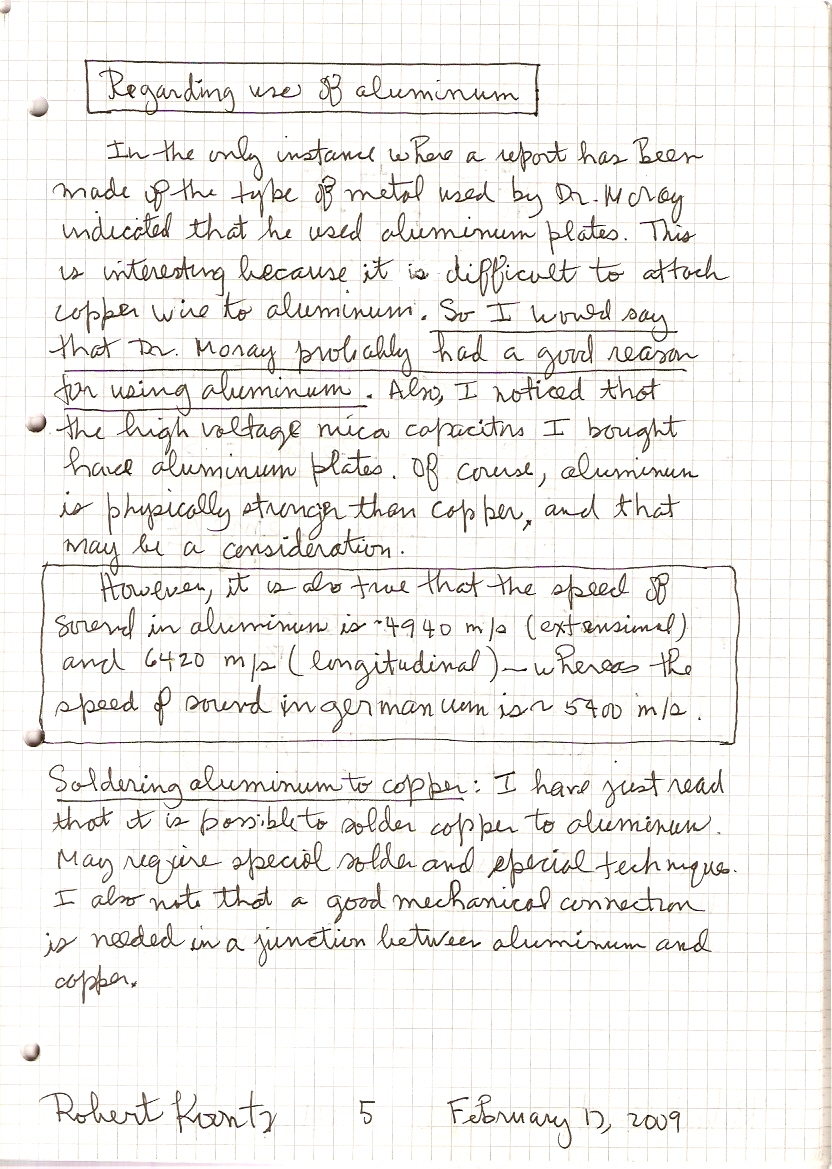 Regarding use of aluminum
In the only instance where a report has been
made of the type of metal used by Dr. Moray
indicated that he used aluminum plates. This
is interesting because it is difficult to attach
copper wire to aluminum. So I would say
that Dr. Moray probably had a good reason
for using aluminum. Also, I noticed that
the high voltage mica capacitors I bought
have aluminum plates. Of course, aluminum
is physically stronger than copper, and that
may be a consideration.
However, it is also true that the speed of
sound in aluminum is ~4940 m/s (extensional)
and 6420 m/s (longitudinal) — whereas the
speed of sound in germanium is ~ 5400 m/s.
Soldering aluminum to copper: I have just read
that it is possible to solder copper to aluminum.
May require special solder and special technique.
I also note that a good mechanical connection
is needed in a junction between aluminum and
copper.
Robert Koontz 5 February , 2009